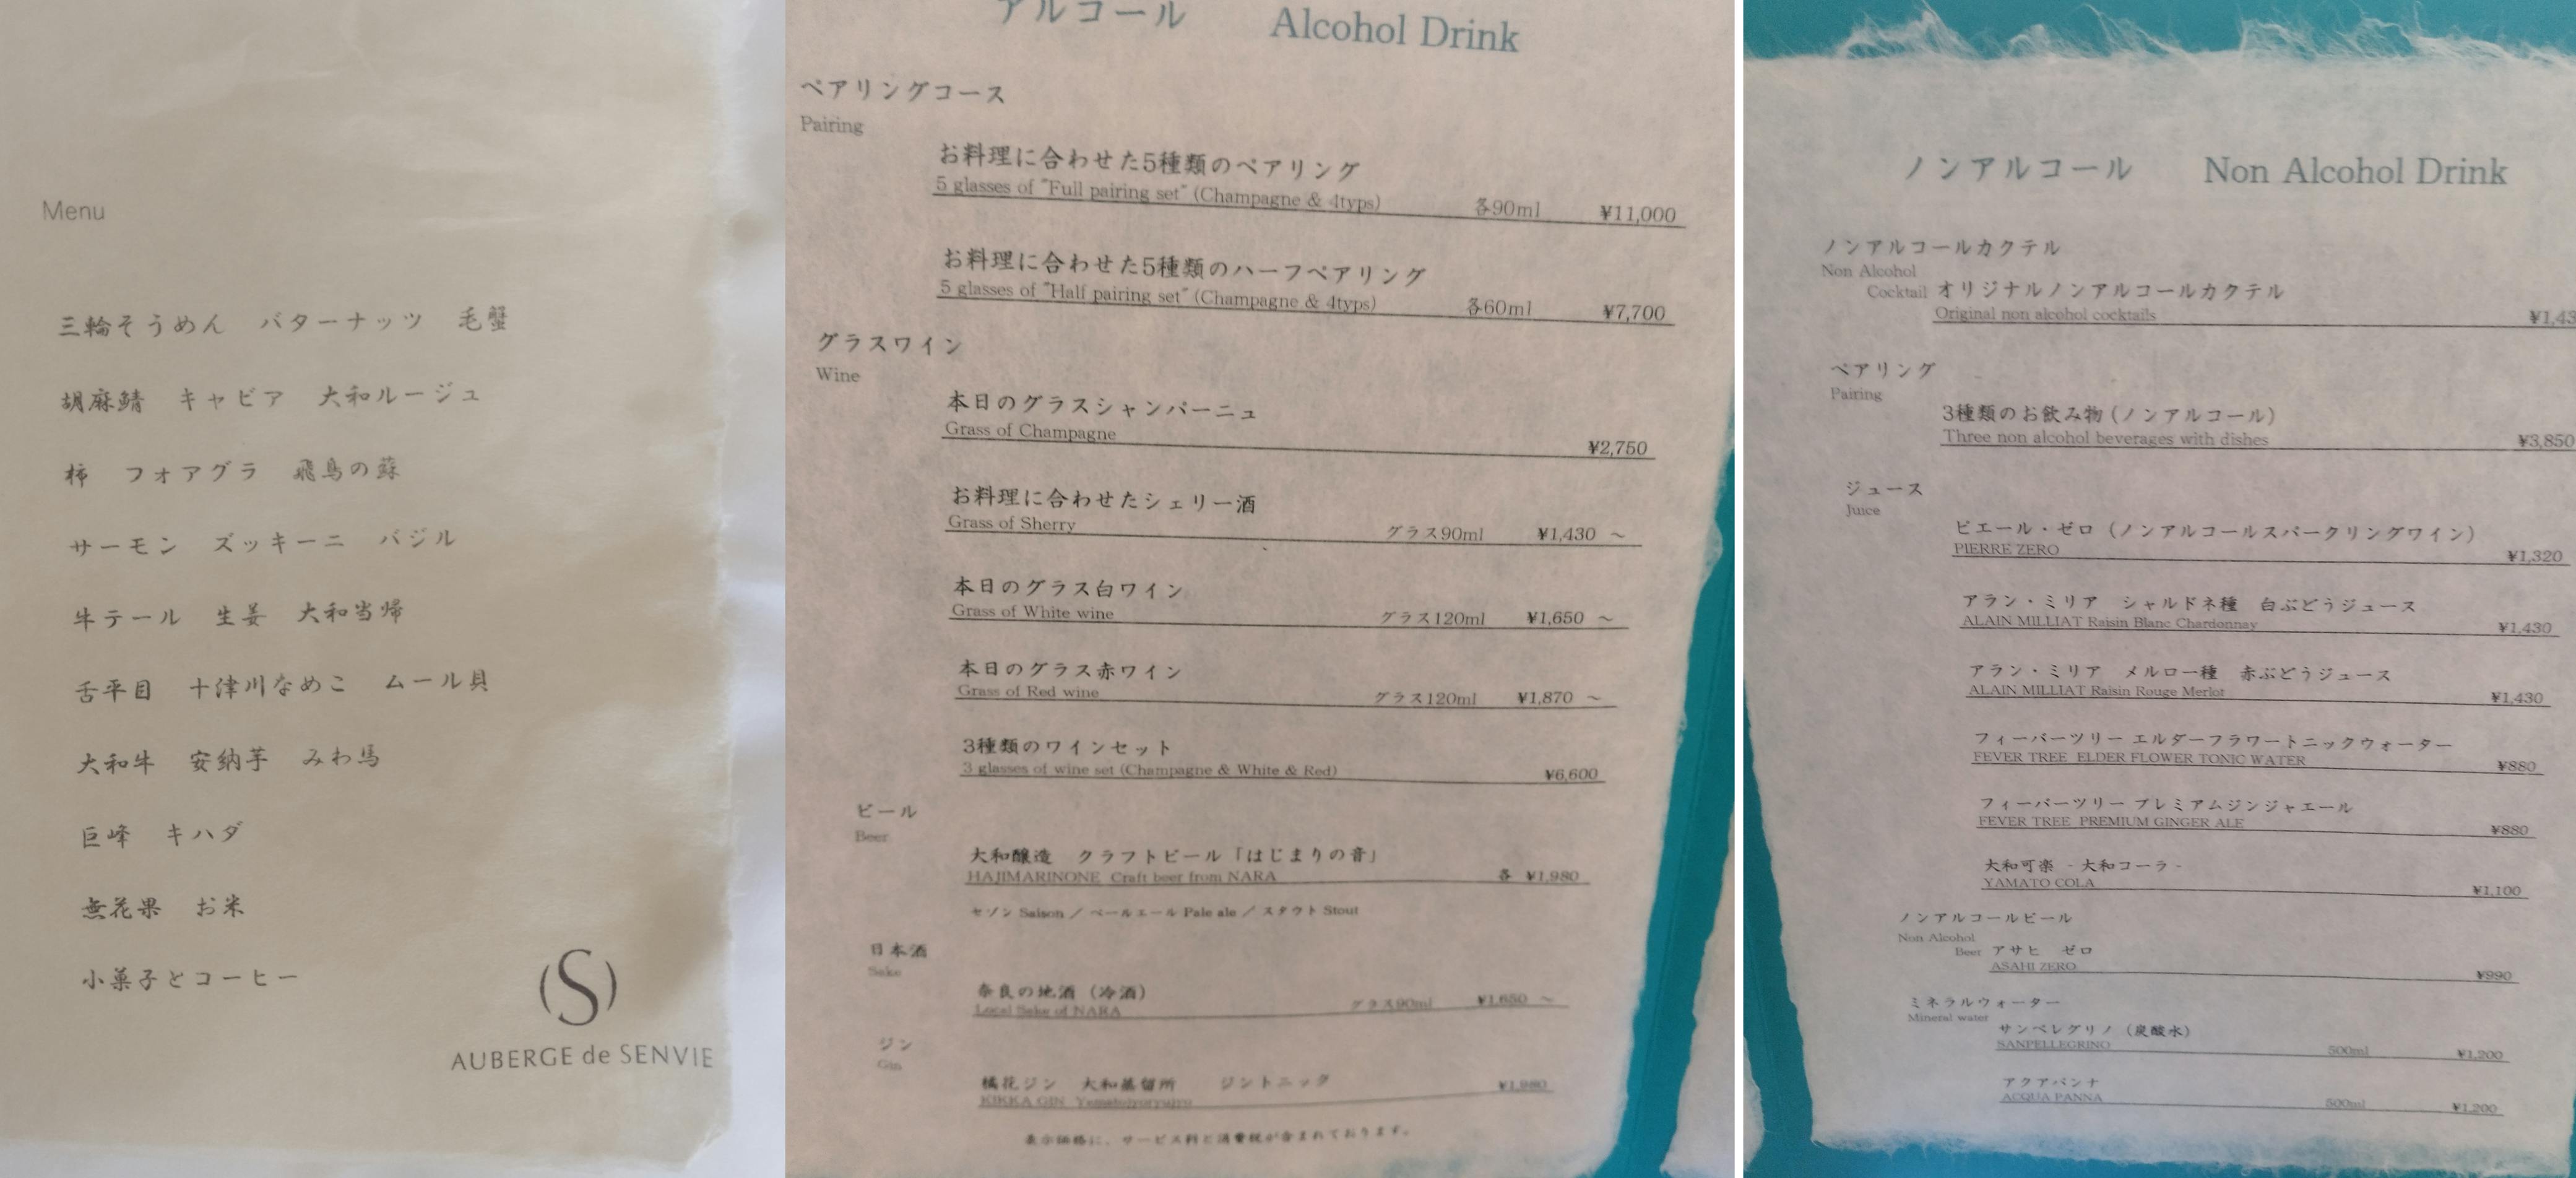 Menu
三輪そうめん　バターナッツ　毛蟹
胡麻鯖　キャビア　大和ルージュ
柿　フォアグラ　飛鳥の蘇
サーモン　ズッキーニ　バジル
牛テール　生姜　大和当帰
舌平目　十津川なめこ　ムール貝
大和牛　安納芋　みわ馬
巨峰　キハダ
無花果　お米
小菓子とコーヒー
(S)
AUBERGE de SENVIE
アルコール　Alcohol Drink
ペアリングコース
Pairing
お料理に合わせた5種類のペアリング
5 glasses of "Full pairing set" (Champagne & 4typs)　各90ml　¥11,000
お料理に合わせた5種類のハーフペアリング
5 glasses of "Half pairing set" (Champagne & 4typs)　各60ml　¥7,700
グラスワイン
Wine
本日のグラスシャンパーニュ
Grass of Champagne　¥2,750
お料理に合わせたシェリー酒
Grass of Sherry　グラス90ml　¥1,430 ～
本日のグラス白ワイン
Grass of White wine　グラス120ml　¥1,650 ～
本日のグラス赤ワイン
Grass of Red wine　グラス120ml　¥1,870 ～
3種類のワインセット
3 glasses of wine set (Champagne & White & Red)　¥6,600
ビール
Beer
大和醸造　クラフトビール「はじまりの音」
HAJIMARINONE Craft beer from NARA　各 ¥1,980
セゾン Saison ／ ペールエール Pale ale ／ スタウト Stout
日本酒
Sake
奈良の地酒（冷酒）
Local Sake of NARA　グラス90ml　¥1,650 ～
ジン
Gin
橘花ジン　大和蒸留所　ジントニック
KIKKA GIN　¥1,980
表示価格に、サービス料と消費税が含まれております。
ノンアルコール　Non Alcohol Drink
ノンアルコールカクテル
Non Alcohol
Cocktail オリジナルノンアルコールカクテル
Original non alcohol cocktails　¥1,43
ペアリング
Pairing
3種類のお飲み物(ノンアルコール)
Three non alcohol beverages with dishes　¥3,850
ジュース
Juice
ピエール・ゼロ（ノンアルコールスパークリングワイン）
PIERRE ZERO　¥1,320
アラン・ミリア　シャルドネ種　白ぶどうジュース
ALAIN MILLIAT Raisin Blanc Chardonnay　¥1,430
アラン・ミリア　メルロー種　赤ぶどうジュース
ALAIN MILLIAT Raisin Rouge Merlot　¥1,430
フィーバーツリー エルダーフラワートニックウォーター
FEVER TREE ELDER FLOWER TONIC WATER　¥880
フィーバーツリー プレミアムジンジャエール
FEVER TREE PREMIUM GINGER ALE　¥880
大和可楽 - 大和コーラ -
YAMATO COLA　¥1,100
ノンアルコールビール
Non Alcohol
Beer アサヒ　ゼロ
ASAHI ZERO　¥990
ミネラルウォーター
Mineral water
サンペレグリノ（炭酸水）
SANPELLEGRINO　500ml　¥1,200
アクアパンナ
ACQUA PANNA　500ml　¥1,200